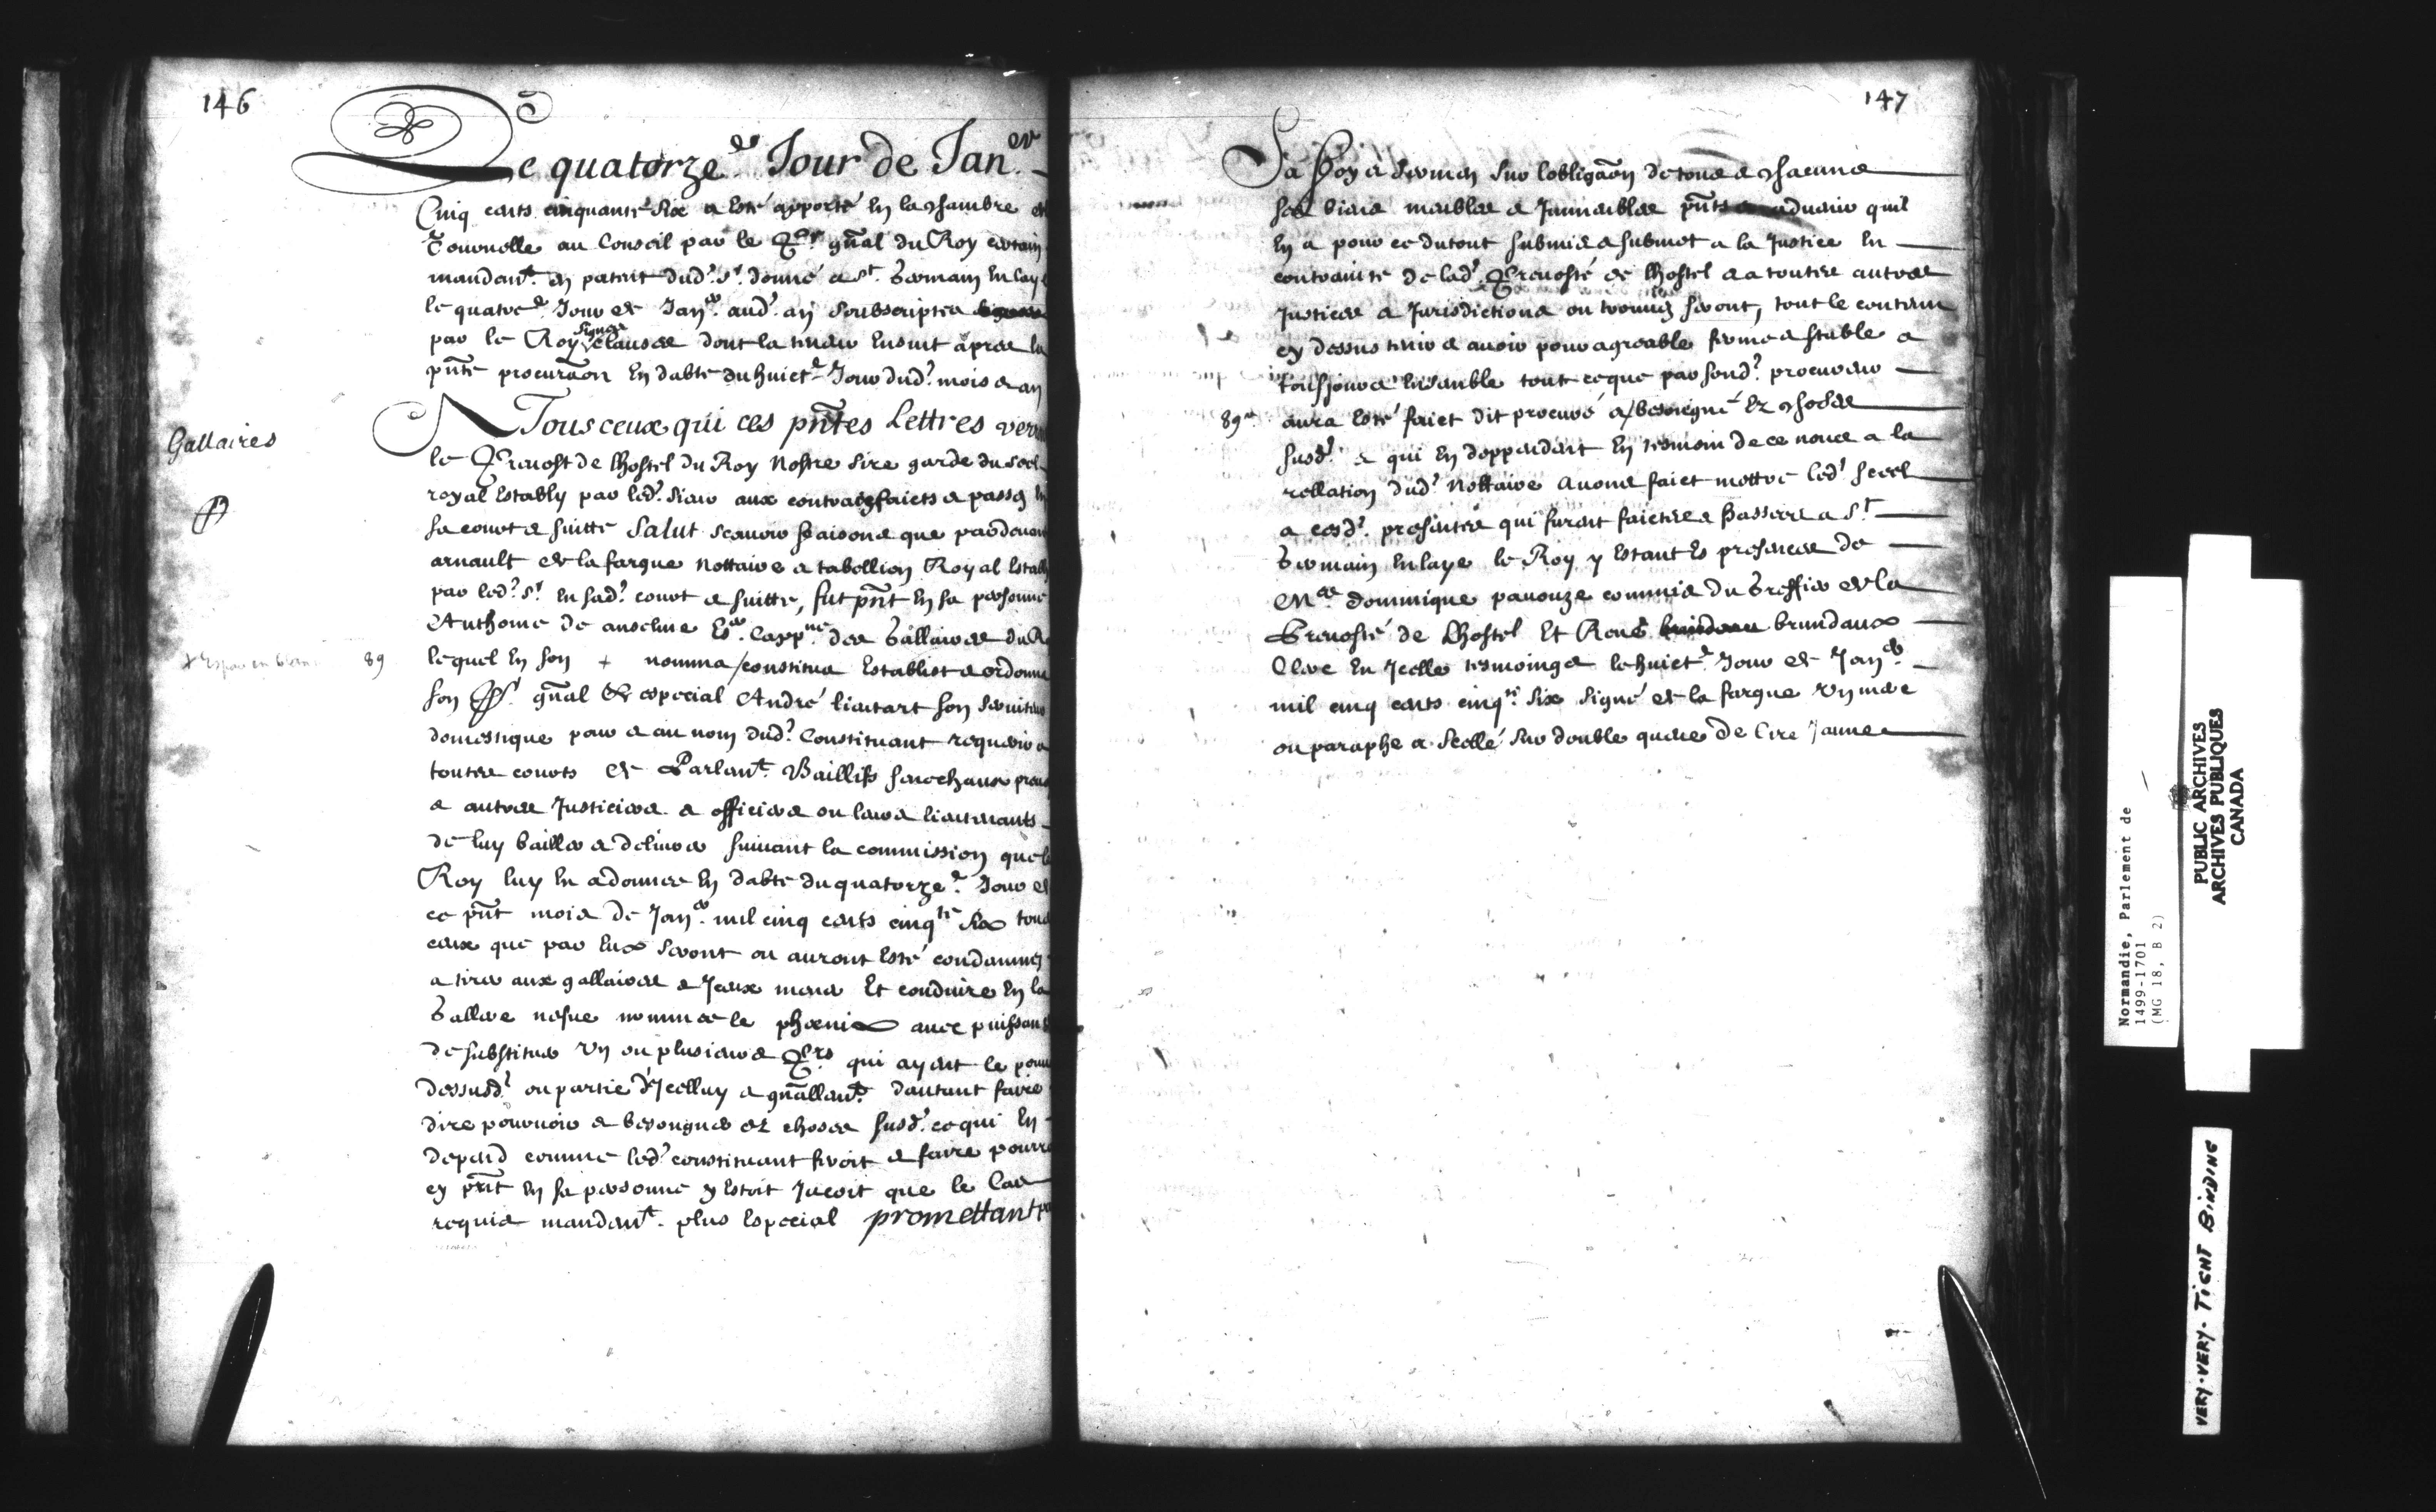 146
Le quatorze.e Jour de Jan.er
Cinq cents cinquante six a esté apporté en la chambre de
Tournelle au Conseil par le Pr.r gñal du Roy certain
mandem.t en patent dud.t s.r donné a S.t Germain en laye
le quatre.e Jour de Jan.er aud.t an soubscriptes
par le Roy signez clauses dont la teneur ensuit apres la
pñte procuraõn en dabte du huict.e Jour dud.t mois & an
A Tous ceux qui ces pñtes Lettres verront
Gallaires
le Prevost de lhostel du Roy nostre sire garde du seel
royal estably par led.t sieur aux contractz faicts & passez en
sa court & suitte Salut scauoir faisons que pardevant
arnault de la fargue nottaire & tabellion Royal estably
par led.t s.r en sad.t court & suitte, fut pñt en sa personne
Anthoine de anselme Es.er Capp.ne des Gallaires du Roy
x Espace en blanc
89
lequel en son + nomma / constitua establist & ordonna
son Pr.r gñal & especial André lieutart son seruiteur
domestique pour & au nom dud.t Constituant requerir a
toutes courts de Parlem.t Baillifs senechaux prevosts
& autres Justiciers & officiers ou leurs lieutenants
de luy bailler & deliurer suiuant la commission que le
Roy luy en a donnee en dabte du quatorze.e Jour de
ce pñt mois de Jan.er mil cinq cents cinq.te six tous
ceux que par eux seront ou auront esté condamnez
a tirer aux gallaires & Jceux mener Et conduire en la
Gallere nefue nommee le phœnix auec puissance
de substituer vn ou plusieurs Pr.rs qui ayent le pouuoir
dessusd.t ou partie d'Jcelluy & gñallem.t dautant faire
dire pouruoir & besongner ez choses susd. ce qui en
depend comme led.t constituant feroit & faire pourroit
cy pñt en sa personne y estoit Jacoit que le Cas
requis mandem.t plus especial promettant par
147
Sa foy & sermen sur lobligaõn de tous & chacuns
ses biens meubles & Jmmeubles pñts aduenir quil
en a pour ce du tout submis & submet a la Justice en
contrainte de lad.t Prevosté de lhostel & a toutes autres
Justices & Jurisdictions ou trouuez seront, tout le contenu
cy dessus tenir & auoir pour agreable ferme & stable a
tousjours ensemble tout ce que par sond.t procureur
89
aura esté faict dit procuré & / besongné Ez choses
susd.t & qui en deppendent En tesmoin de ce nous a la
rellation dud.t nottaire auons faict mettre led.t seeel
a cesd.t presentes qui furent faictes & passees a S.t
Germain enlaye le Roy y estant Es presences de
M.re dominique panouze commis du Greffier de la
Prevosté de Lhostel Et René brundaux
Clerc en Jcelle tesmoings le huict.e Jour de Jan.er
mil cinq cents cinq.te six signé de la fargue vn merc
ou paraphe & scellé sur double queue de Cire Jaune
Normandie, Parlement de
1499-1701
(MG 18, B 2)
PUBLIC ARCHIVES
ARCHIVES PUBLIQUES
CANADA
VERY-VERY-TIGHT BINDING